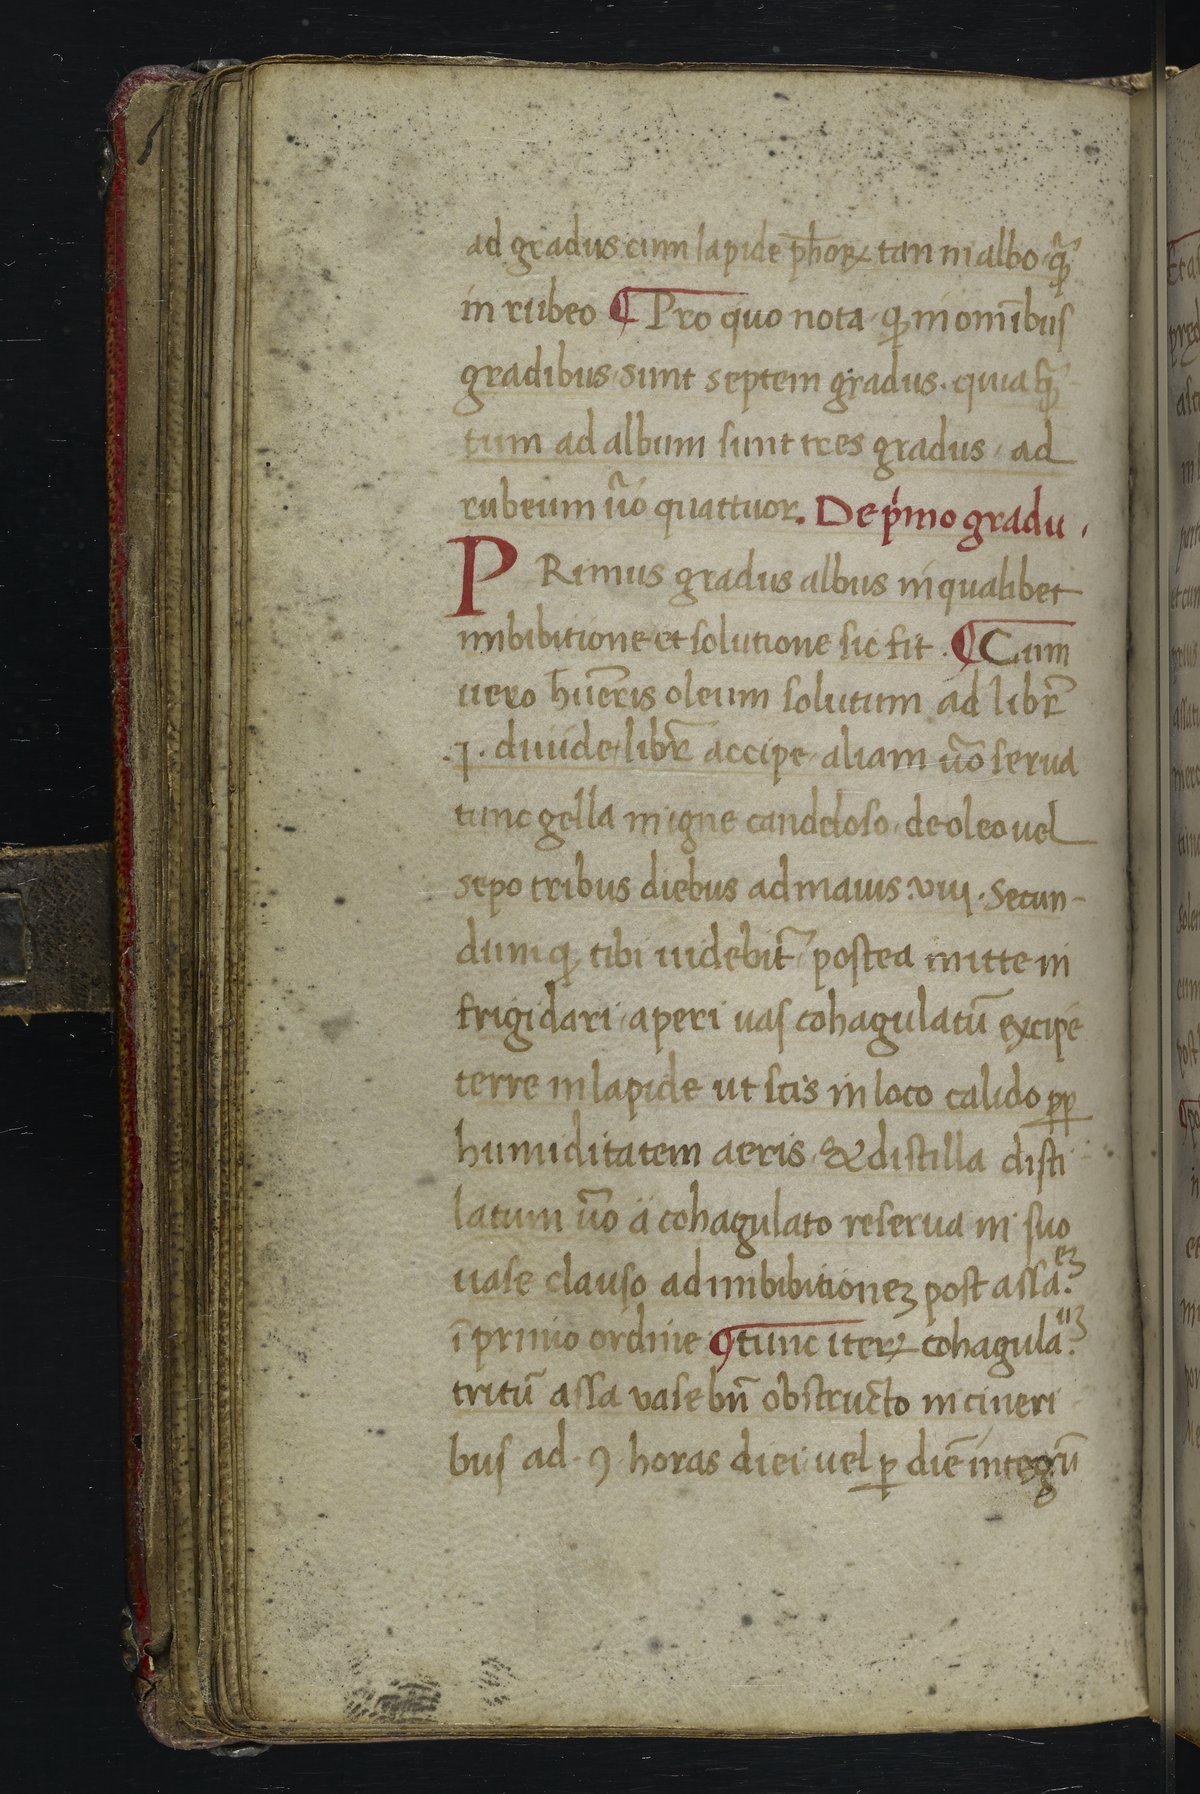 ad gradus cum lapide ph̄oꝝ tan in albo · qᷓꝫ
in rubeo ¶ Pro quo nota · ꝙ in om̄ibus
gradibus sunt septem gradus · quia qᷓꝫ
tum ad album sunt tres gradus · ad
rubeum ūo quattuor. De pͥmo gradu ·
PRimus gradus albus in qualibet
imbibitione et solutione sic fit · ¶ Cum
uero hūeris oleum solutum ad libr̄
.ȷ. diuide libr̄ accipe aliam ūo serua
tunc gella in igne candeloso · de oleo uel
sepo tribus diebus ad maius .viij. Secun-
dum ꝙ tibi uidebit̄ postea mitte in
frigidari · aperi uas cohagulatū excipe
terre in lapide ut scis in loco calido ꝓp
humiditatem aeris · & distilla disti
latum ūo a cohagulato reserua in suo
uase clauso ad imbibitioneꝫ post assa.eꝫ
ī primo ordine ¶ tunc iteꝝ cohagula.uꝫ
tritū assa vase bn̄ obstructo in cineri
bus ad · 9 · horas diei uel ꝑ diē integrū